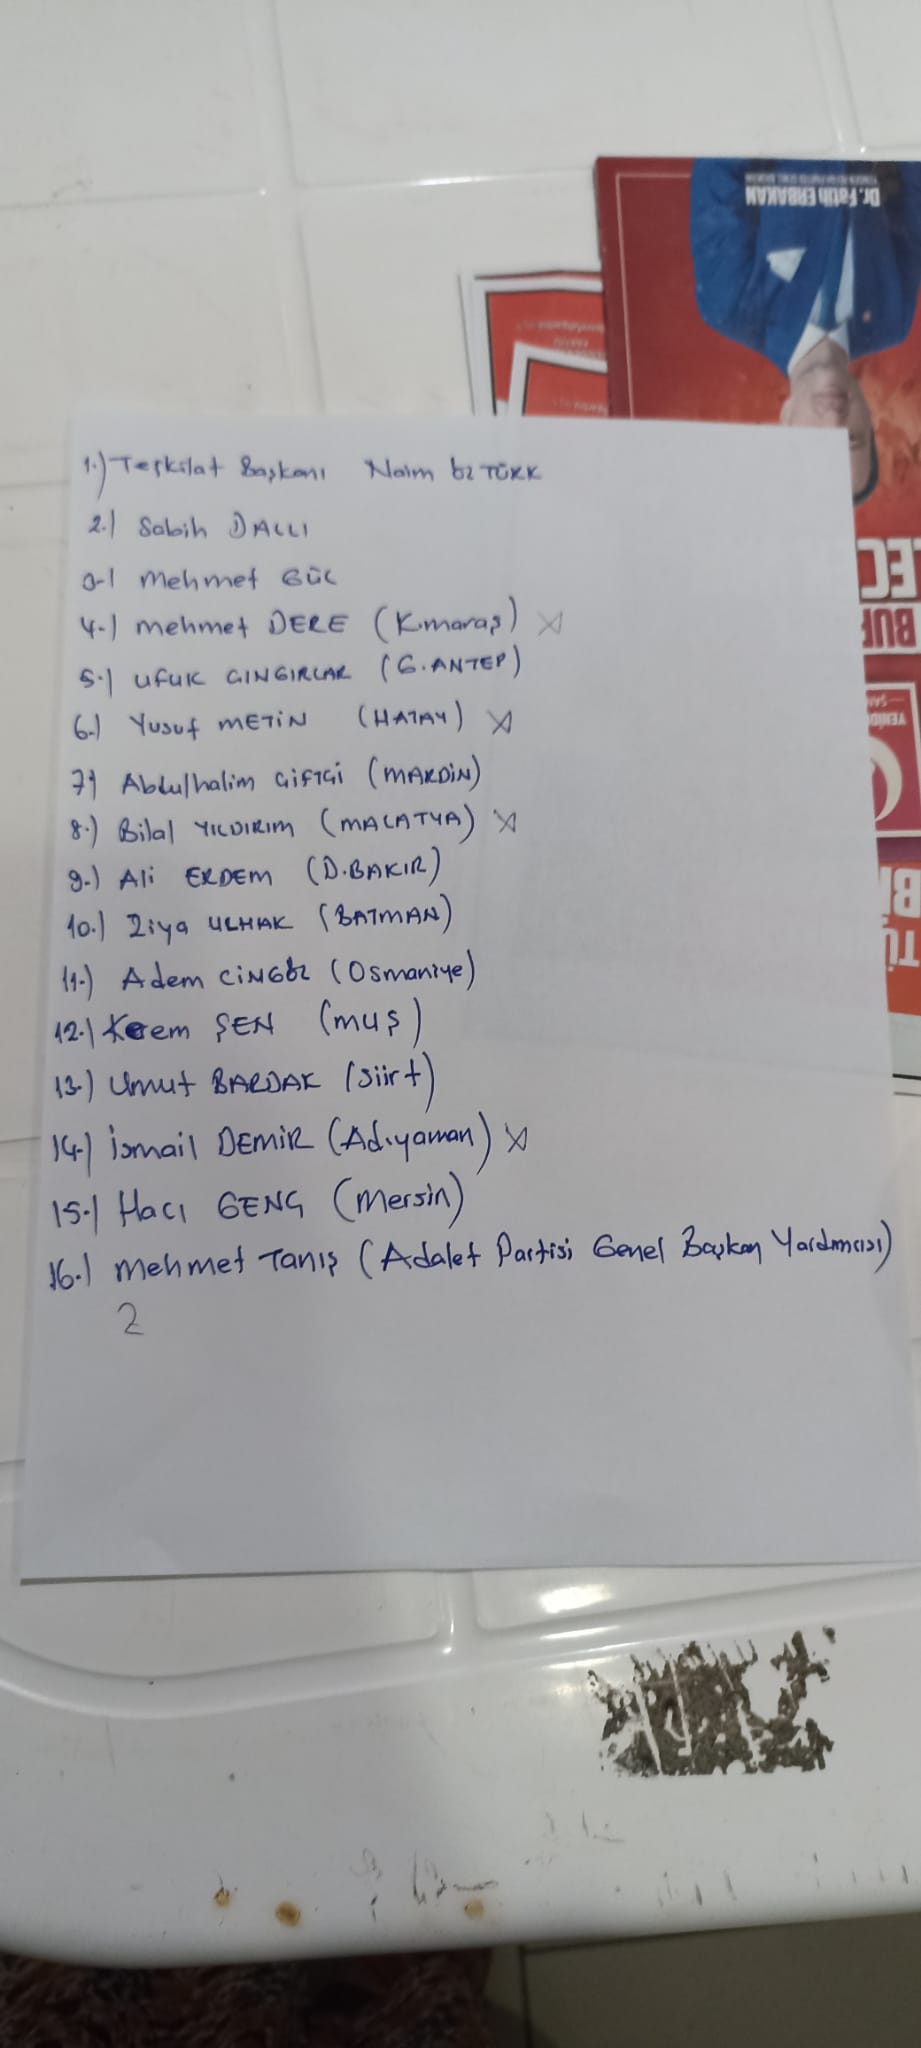 Dr. Fatih ERBAKAN
1.) Teşkilat Başkanı Naim ÖZTÜRK
2.) Sabih DALLI
3-) Mehmet GÜÇ
4-) Mehmet DERE (K.maraş) X
5-) UFUK CINGIRLAR (G.ANTEP)
6-) Yusuf METİN (HATAY) X
7-) Abdulhalim ÇİFTÇİ (MARDİN)
8-) Bilal YILDIRIM (MALATYA) X
9-) Ali ERDEM (D.BAKIR)
10-) Ziya ULHAK (BATMAN)
11-) Adem CİNGÖZ (Osmaniye)
12-) Kerem ŞEN (muş)
13-) Umut BARDAK (Siirt)
14-) İsmail DEMİR (Adıyaman) X
15-) Hacı GENÇ (Mersin)
16-) Mehmet Tanış (Adalet Partisi Genel Başkan Yardımcısı)
2